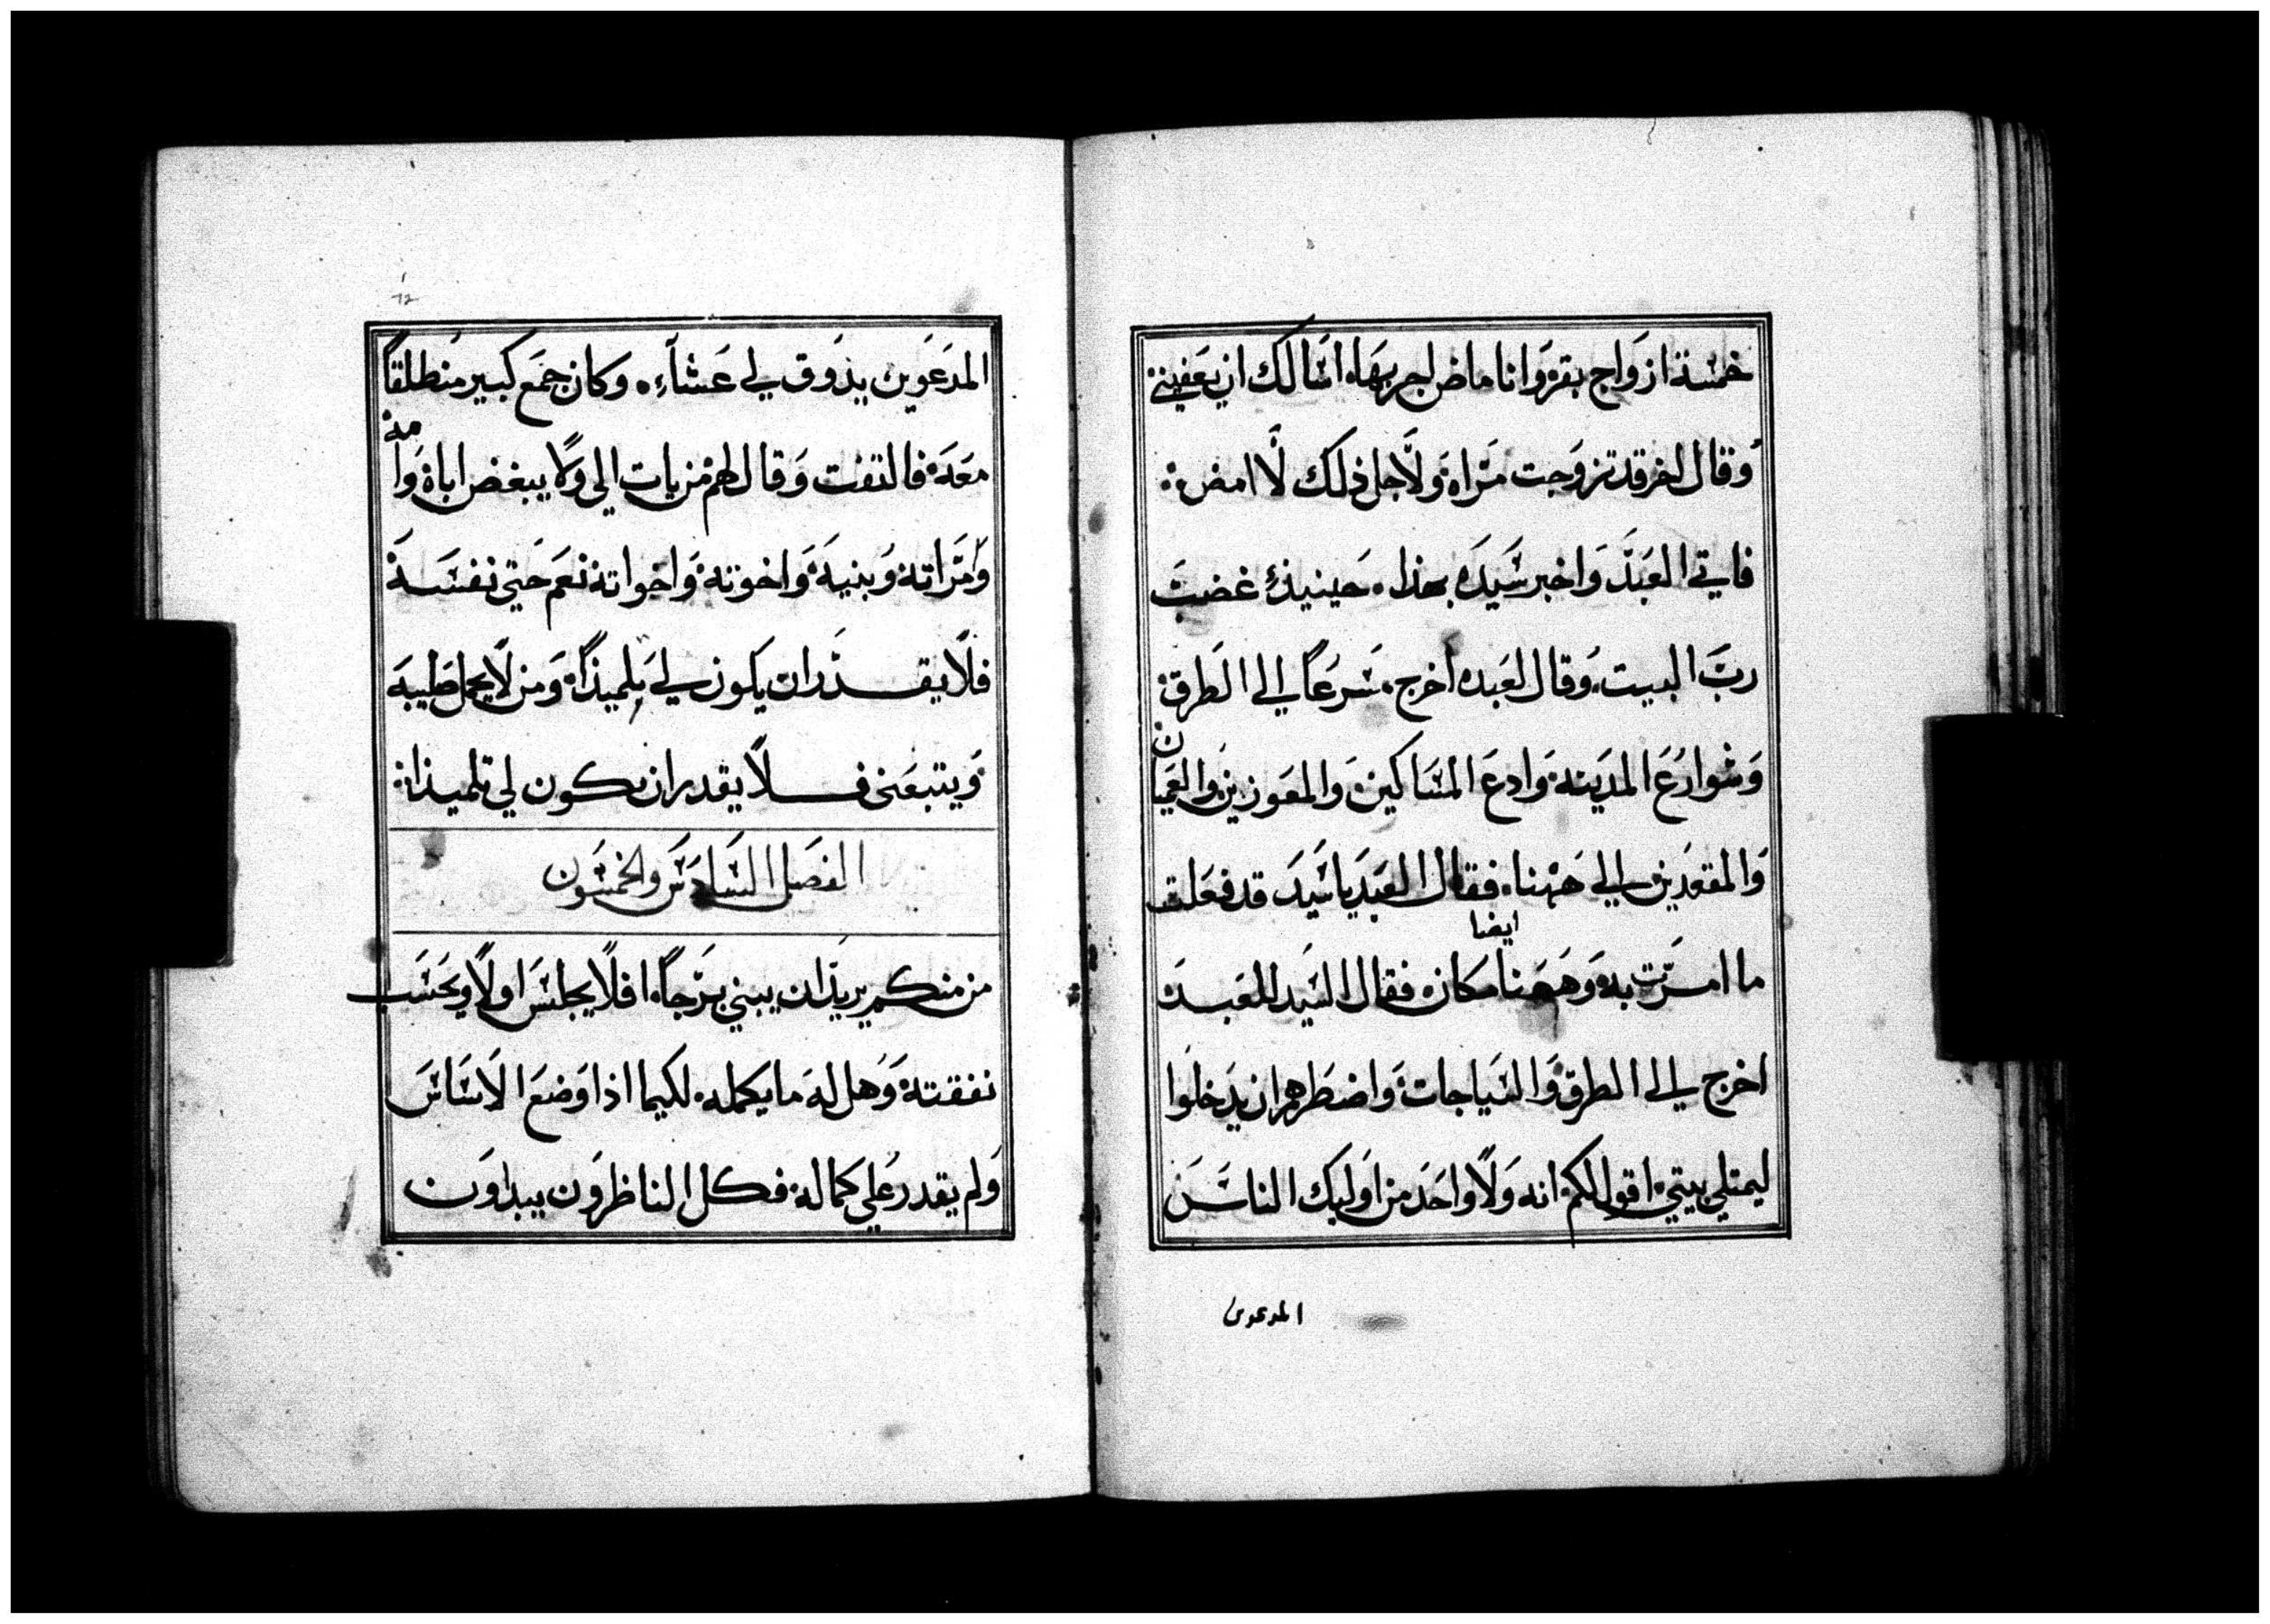 خمسة ازواج بقر وانا ماض لجربها، اسالك ان يعفيني
وقال اخر قد تزوجت مراة ولاجل ذلك لا امض:
فاتي العبد واخبر سيده بهذا. حينيذٍ غضب
ربّ البيت. وقال لعبده اخرج. سرعاً الي الطرق
وشوارع المدينه وادع المساكين والمعوزين والعميان
والمقعدين الي ههنا. فقال العبد يا سيد قد فعلت
ما امرت به وههنا ايضا مكان. فقال السيد للعبد
اخرج الي الطرق والسياجات واضطرهم ان يدخلوا
ليمتلي بيتي. اقول لكم. انه ولا واحد من اوليك الناس
المدعوين
المدعوين يذوق لي عشآء. وكان جمع كبير منطلقاً
معه. فالتفت وقال لهم من يات الي ولا يبغض اباه وامه
وامراته وبنيه واخوته واخواته نعم حتي نفسه
فلا يقدر ان يكون لي تلميذاً. ومن لا يحمل صليبه
ويتبعني فلا يقدر ان يكون لي تلميذا:
الفصل السادس والخمسون
من منكم يريد ان يبني برجاً. افلا يجلس اولاً ويحسب
نفقته. وهل له ما يكمله. لكيما اذا وضع الاساس
ولم يقدر علي كماله. فكل الناظرون يبداون